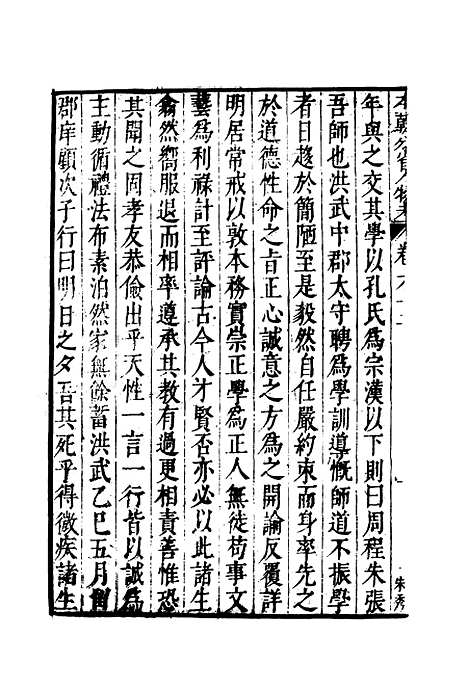 本朝分省人物考 卷
年與之交其學以孔氏爲宗漢以下則曰周程朱張
吾師也洪武中郡太守聘爲學訓導慨師道不振學
者日趍於簡陋至是毅然自任嚴約束而身率先之
於道德性命之旨正心誠意之方爲之開論反覆詳
明居常戒以敦本務實崇正學爲正人無徒苟事文
藝爲利祿計至評論古今人才賢否亦必以此諸生
翕然嚮服退而相率遵承其教有過更相責善惟恐
其聞之周孝友恭儉出乎天性一言一行皆以誠爲
主動循禮法布素泊然家無餘蓄洪武乙巳五月
郡庠顧次子行曰明日之夕吾其死乎得微疾諸生